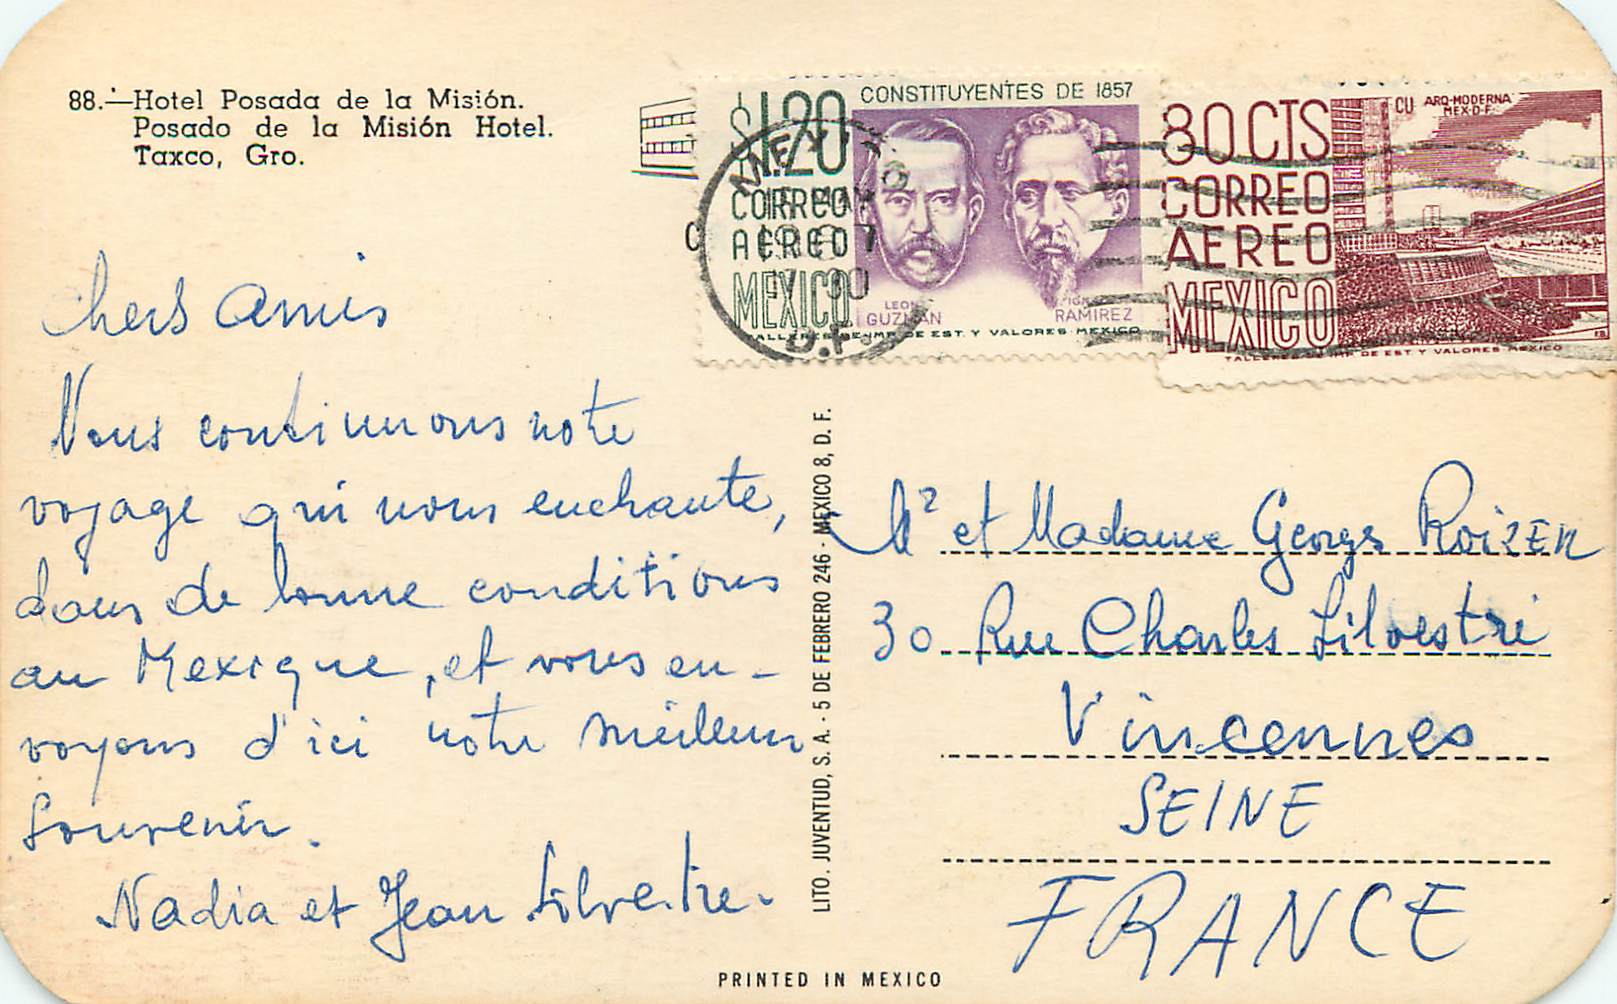 88.—Hotel Posada de la Misión.
Posado de la Misión Hotel.
Taxco, Gro.
$1.20
CONSTITUYENTES DE 1857
CORREO
AEREO
MEXICO
LEON
GUZMAN
IGNACIO
RAMIREZ
TALLERES DE IMP. DE EST. Y VALORES-MEXICO
80 CTS
CORREO
AEREO
MEXICO
CU ARQ-MODERNA
MEX-D-F-
TALLERES DE IMP. DE EST. Y VALORES-MEXICO
MEXICO
D.F.
Chers Amis
Nous continuons notre
voyage qui nous enchante,
dans de bonne conditions
au Mexique, et vous en-
voyons d'ici notre meilleur
Souvenir.
Nadia et Jean Silvestre.
LITO. JUVENTUD, S. A. - 5 DE FEBRERO 246 - MEXICO 8, D. F.
Mr et Madame Georges RoizEn
30 Rue Charles Silvestri
Vincennes
SEINE
FRANCE
PRINTED IN MEXICO